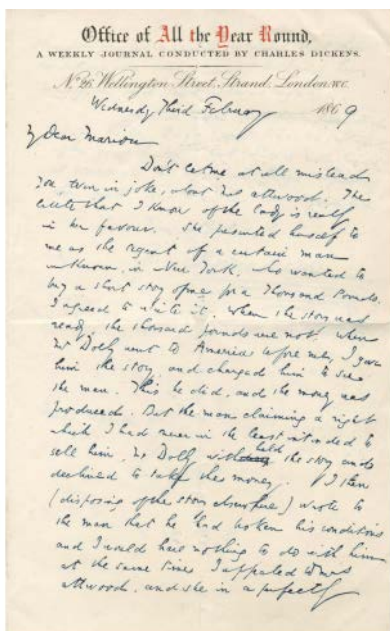 Office of All the Year Round,
A WEEKLY JOURNAL CONDUCTED BY CHARLES DICKENS.
No. 26 Wellington Street, Strand, London. W.C.
Wednesday Third February 1869
My Dear Marion
Don't let me at all mislead
you, even in joke, about Mrs Attwood. The
little that I know of the lady is really
in her favour. She presented herself to
me as the agent of a certain man
unknown, in New York, who wanted to
buy a short story of me for a Thousand Pounds.
I agreed to write it. When the story was
ready, the thousand pounds were not. When
Mr Dolby went to America before me, I gave
him the story, and charged him to see
the man. This he did, and the money was
produced. But the man claiming a right
which I had never in the least intended to
sell him, Mr Dolby withheld the story and
declined to take the money. I then
(disposing of the story elsewhere) wrote to
the man that he had broken his conditions
and I would have nothing to do with him
at the same time I appealed to Mrs
Attwood, and she in a perfectly